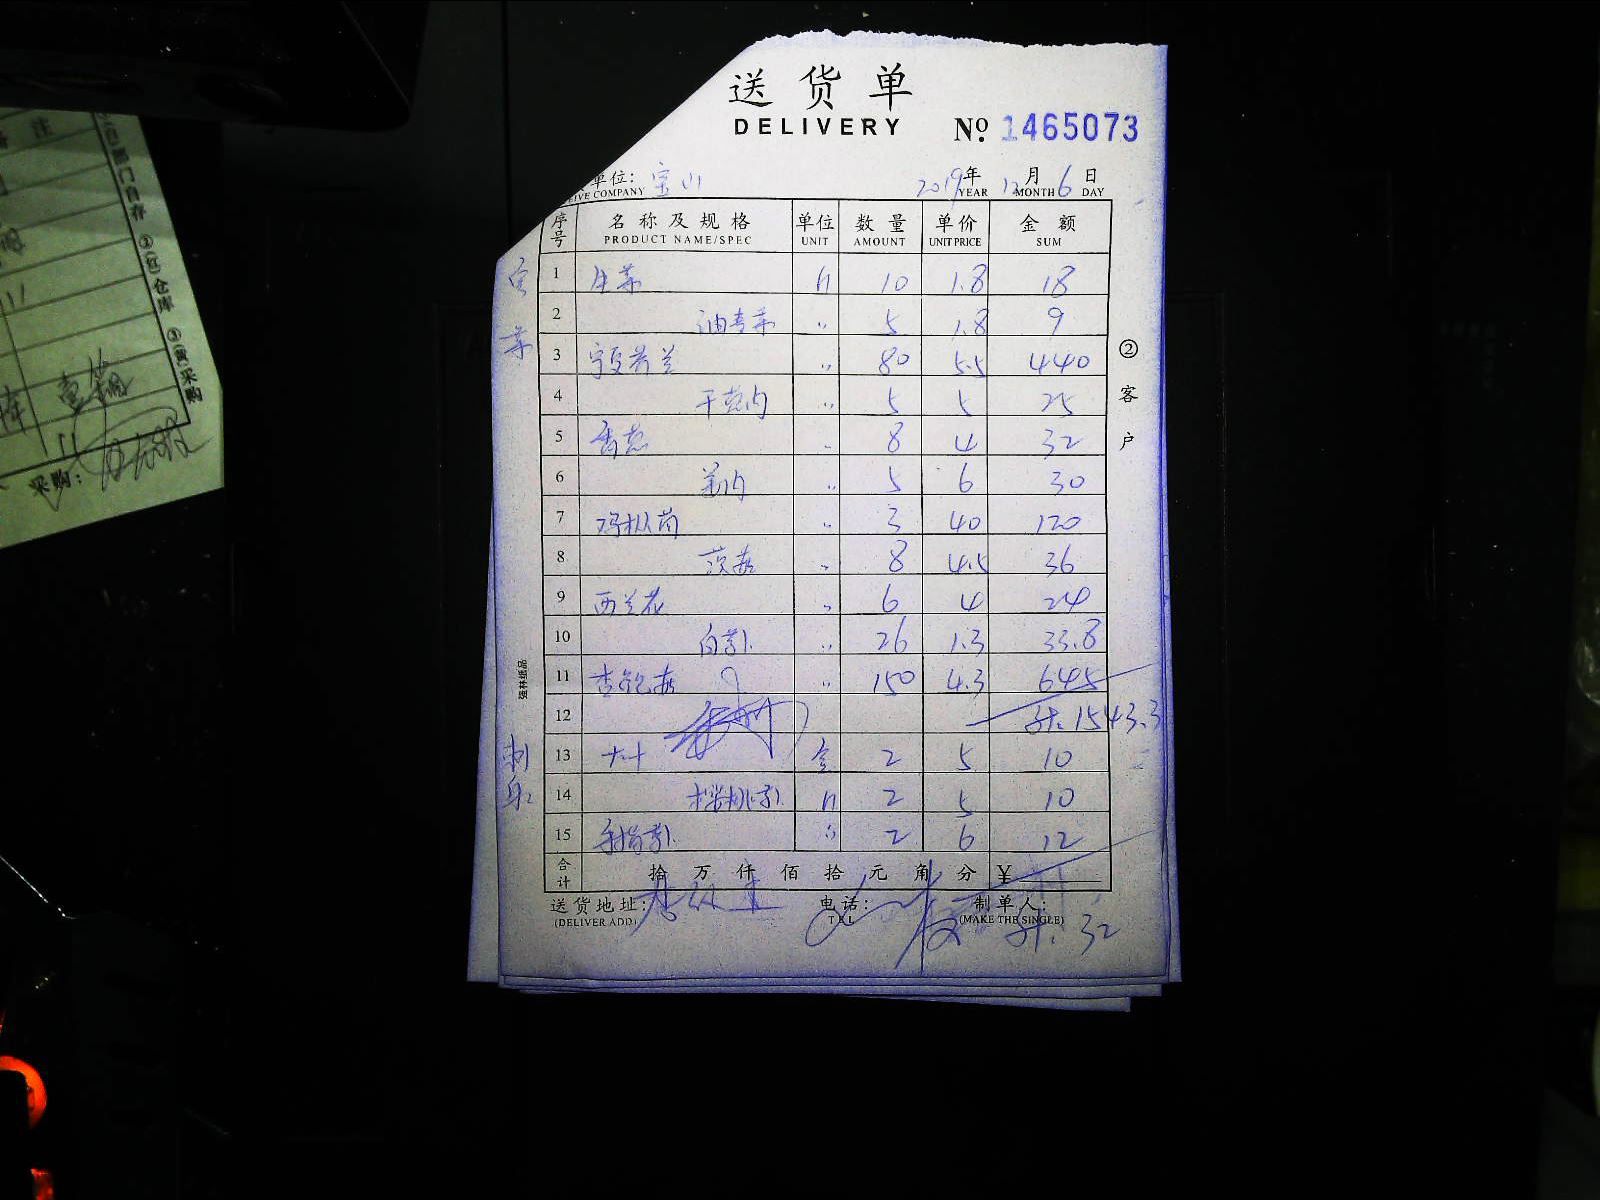 送货单
DELIVERY № 1465073
单位：宝山 2019年 12月 6日
EIVE COMPANY YEAR MONTH DAY
序号 名称及规格 单位 数量 单价 金额
PRODUCT NAME/SPEC UNIT AMOUNT UNIT PRICE SUM
1 生菜 斤 10 1.8 18
2 油麦菜 〃 5 1.8 9
3 宁夏芥兰 〃 80 5.5 440
4 干葱肉 〃 5 5 25
5 香葱 〃 8 4 32
6 姜肉 〃 5 6 30
7 鸡枞菌 〃 3 40 120
8 茨菇 〃 8 4.5 36
9 西兰花 〃 6 4 24
10 白萝卜 〃 26 1.3 33.8
11 杏鲍菇 〃 150 4.3 645
12 计：1543.3
13 大叶 盒 2 5 10
14 樱桃萝卜 斤 2 5 10
15 手指萝卜 〃 2 6 12
合计 拾 万 仟 佰 拾 元 角 分 ¥
送货地址： 电话： 制单人：
(DELIVER ADD) TEL (MAKE THE SINGLE)
计：32
②客户
强林纸品
刺身
注
部门自存 ②(红)仓库 ③(黄)采购
采购：